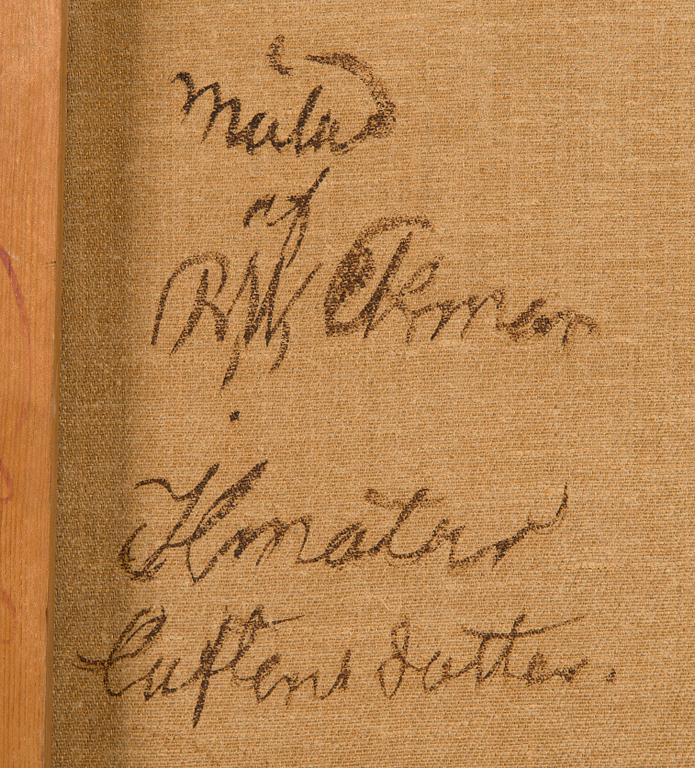 Målad
af
R W Ekman
Ilmatar
Luftens dotter.